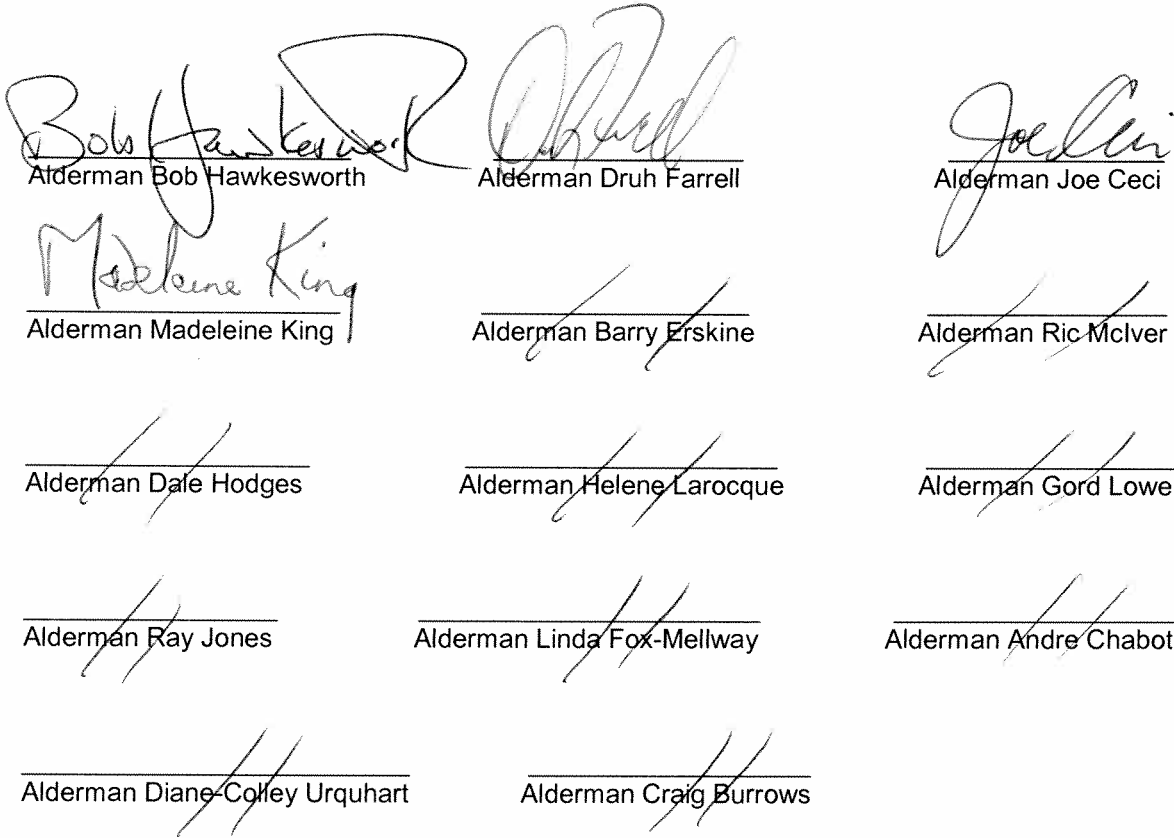 Bob Hawkesworth Joe Ceci
Alderman Bob Hawkesworth Alderman Druh Farrell Alderman Joe Ceci
Madeleine King
Alderman Madeleine King Alderman Barry Erskine Alderman Ric McIver
Alderman Dale Hodges Alderman Helene Larocque Alderman Gord Lowe
Alderman Ray Jones Alderman Linda Fox-Mellway Alderman Andre Chabot
Alderman Diane-Colley Urquhart Alderman Craig Burrows